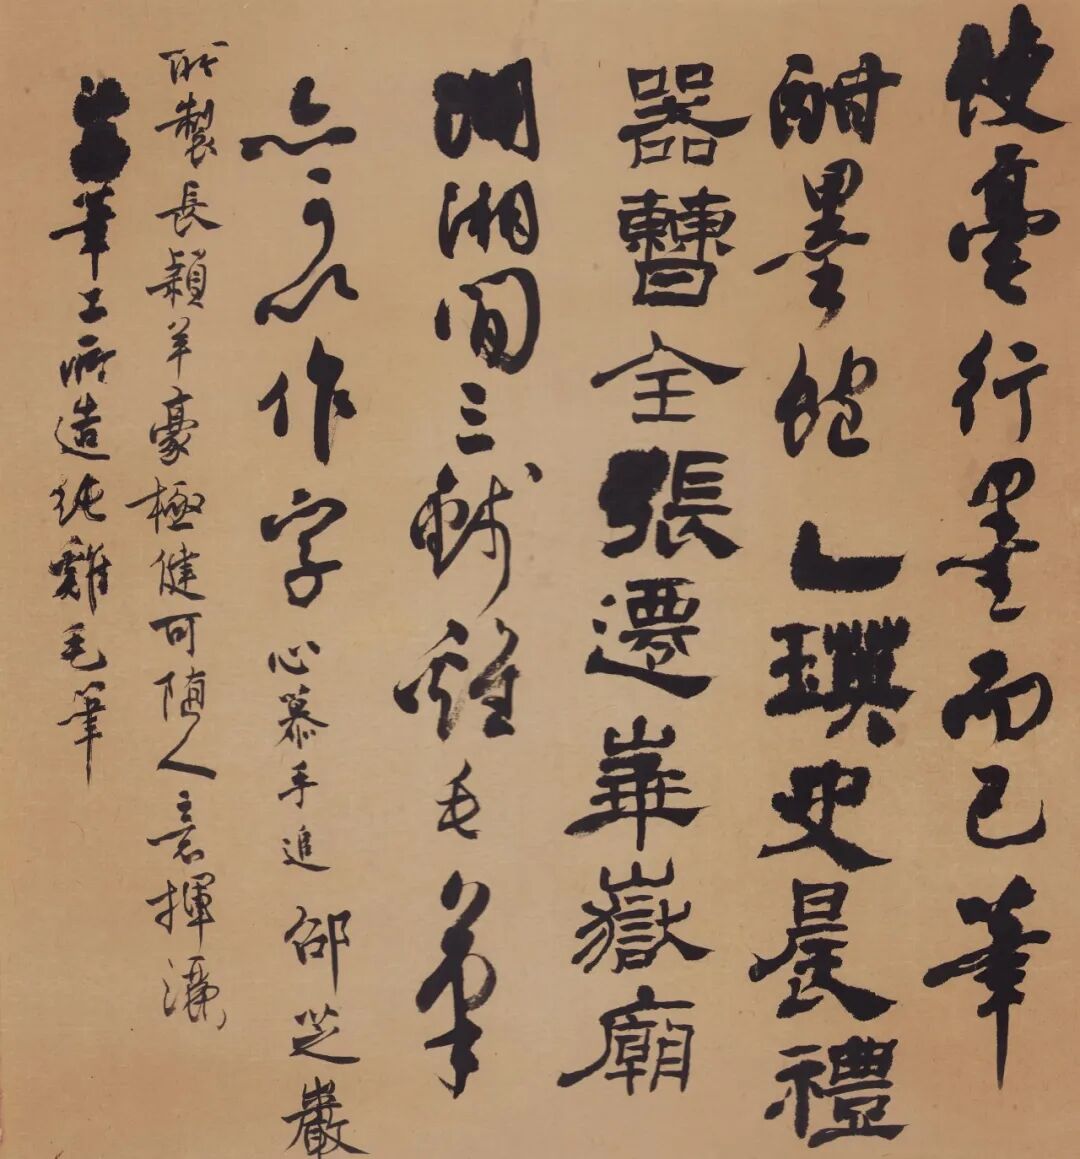 使毫行墨而已筆
酣墨飽乙瑛史晨禮
器曹全張遷華嶽廟
湖湘間三錢雞毛筆
亦可以作字心慕手追邵芝巖
所製長穎羊豪極健可隨人意揮灑
筆工所造純雞毛筆